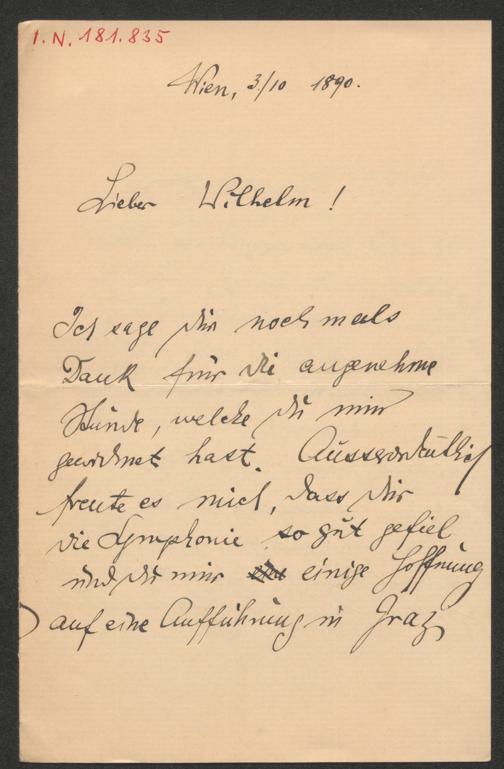 I.N. 181.835
Wien, 3/10 1890.
Lieber Wilhelm!
Ich sage dir nochmals
Dank für die angenehme
Stunde, welche du mir
gewidmet hast. Ausserordentlich
freute es mich, dass dir
die Symphonie so gut gefiel
und du mir einige Hoffnung
auf eine Aufführung in Graz